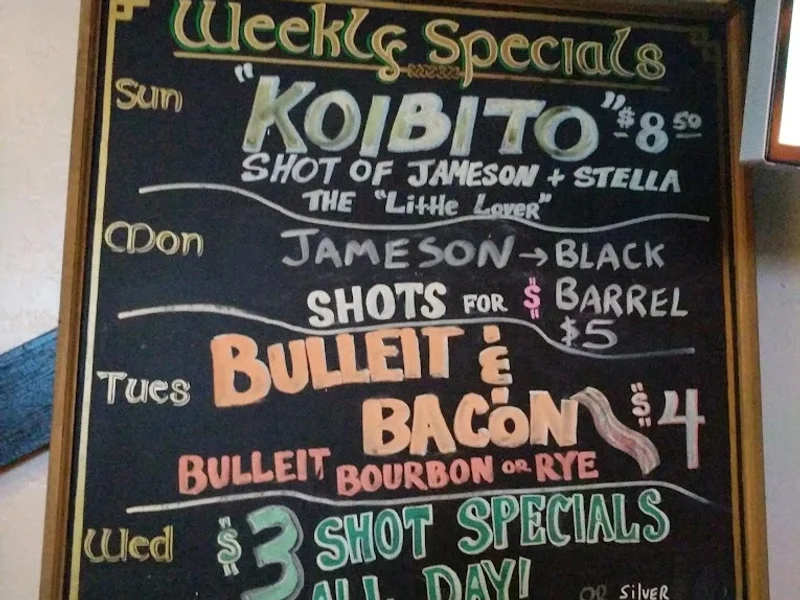 Weekly Specials
Sun
"KOIBITO" $8 50
SHOT OF JAMESON + STELLA
THE "Little Lover"
Mon
JAMESON → BLACK
SHOTS FOR $ BARREL
$5
Tues
BULLEIT &
BACON $4
BULLEIT BOURBON OR RYE
Wed
$3 SHOT SPECIALS
ALL DAY!
OR SILVER